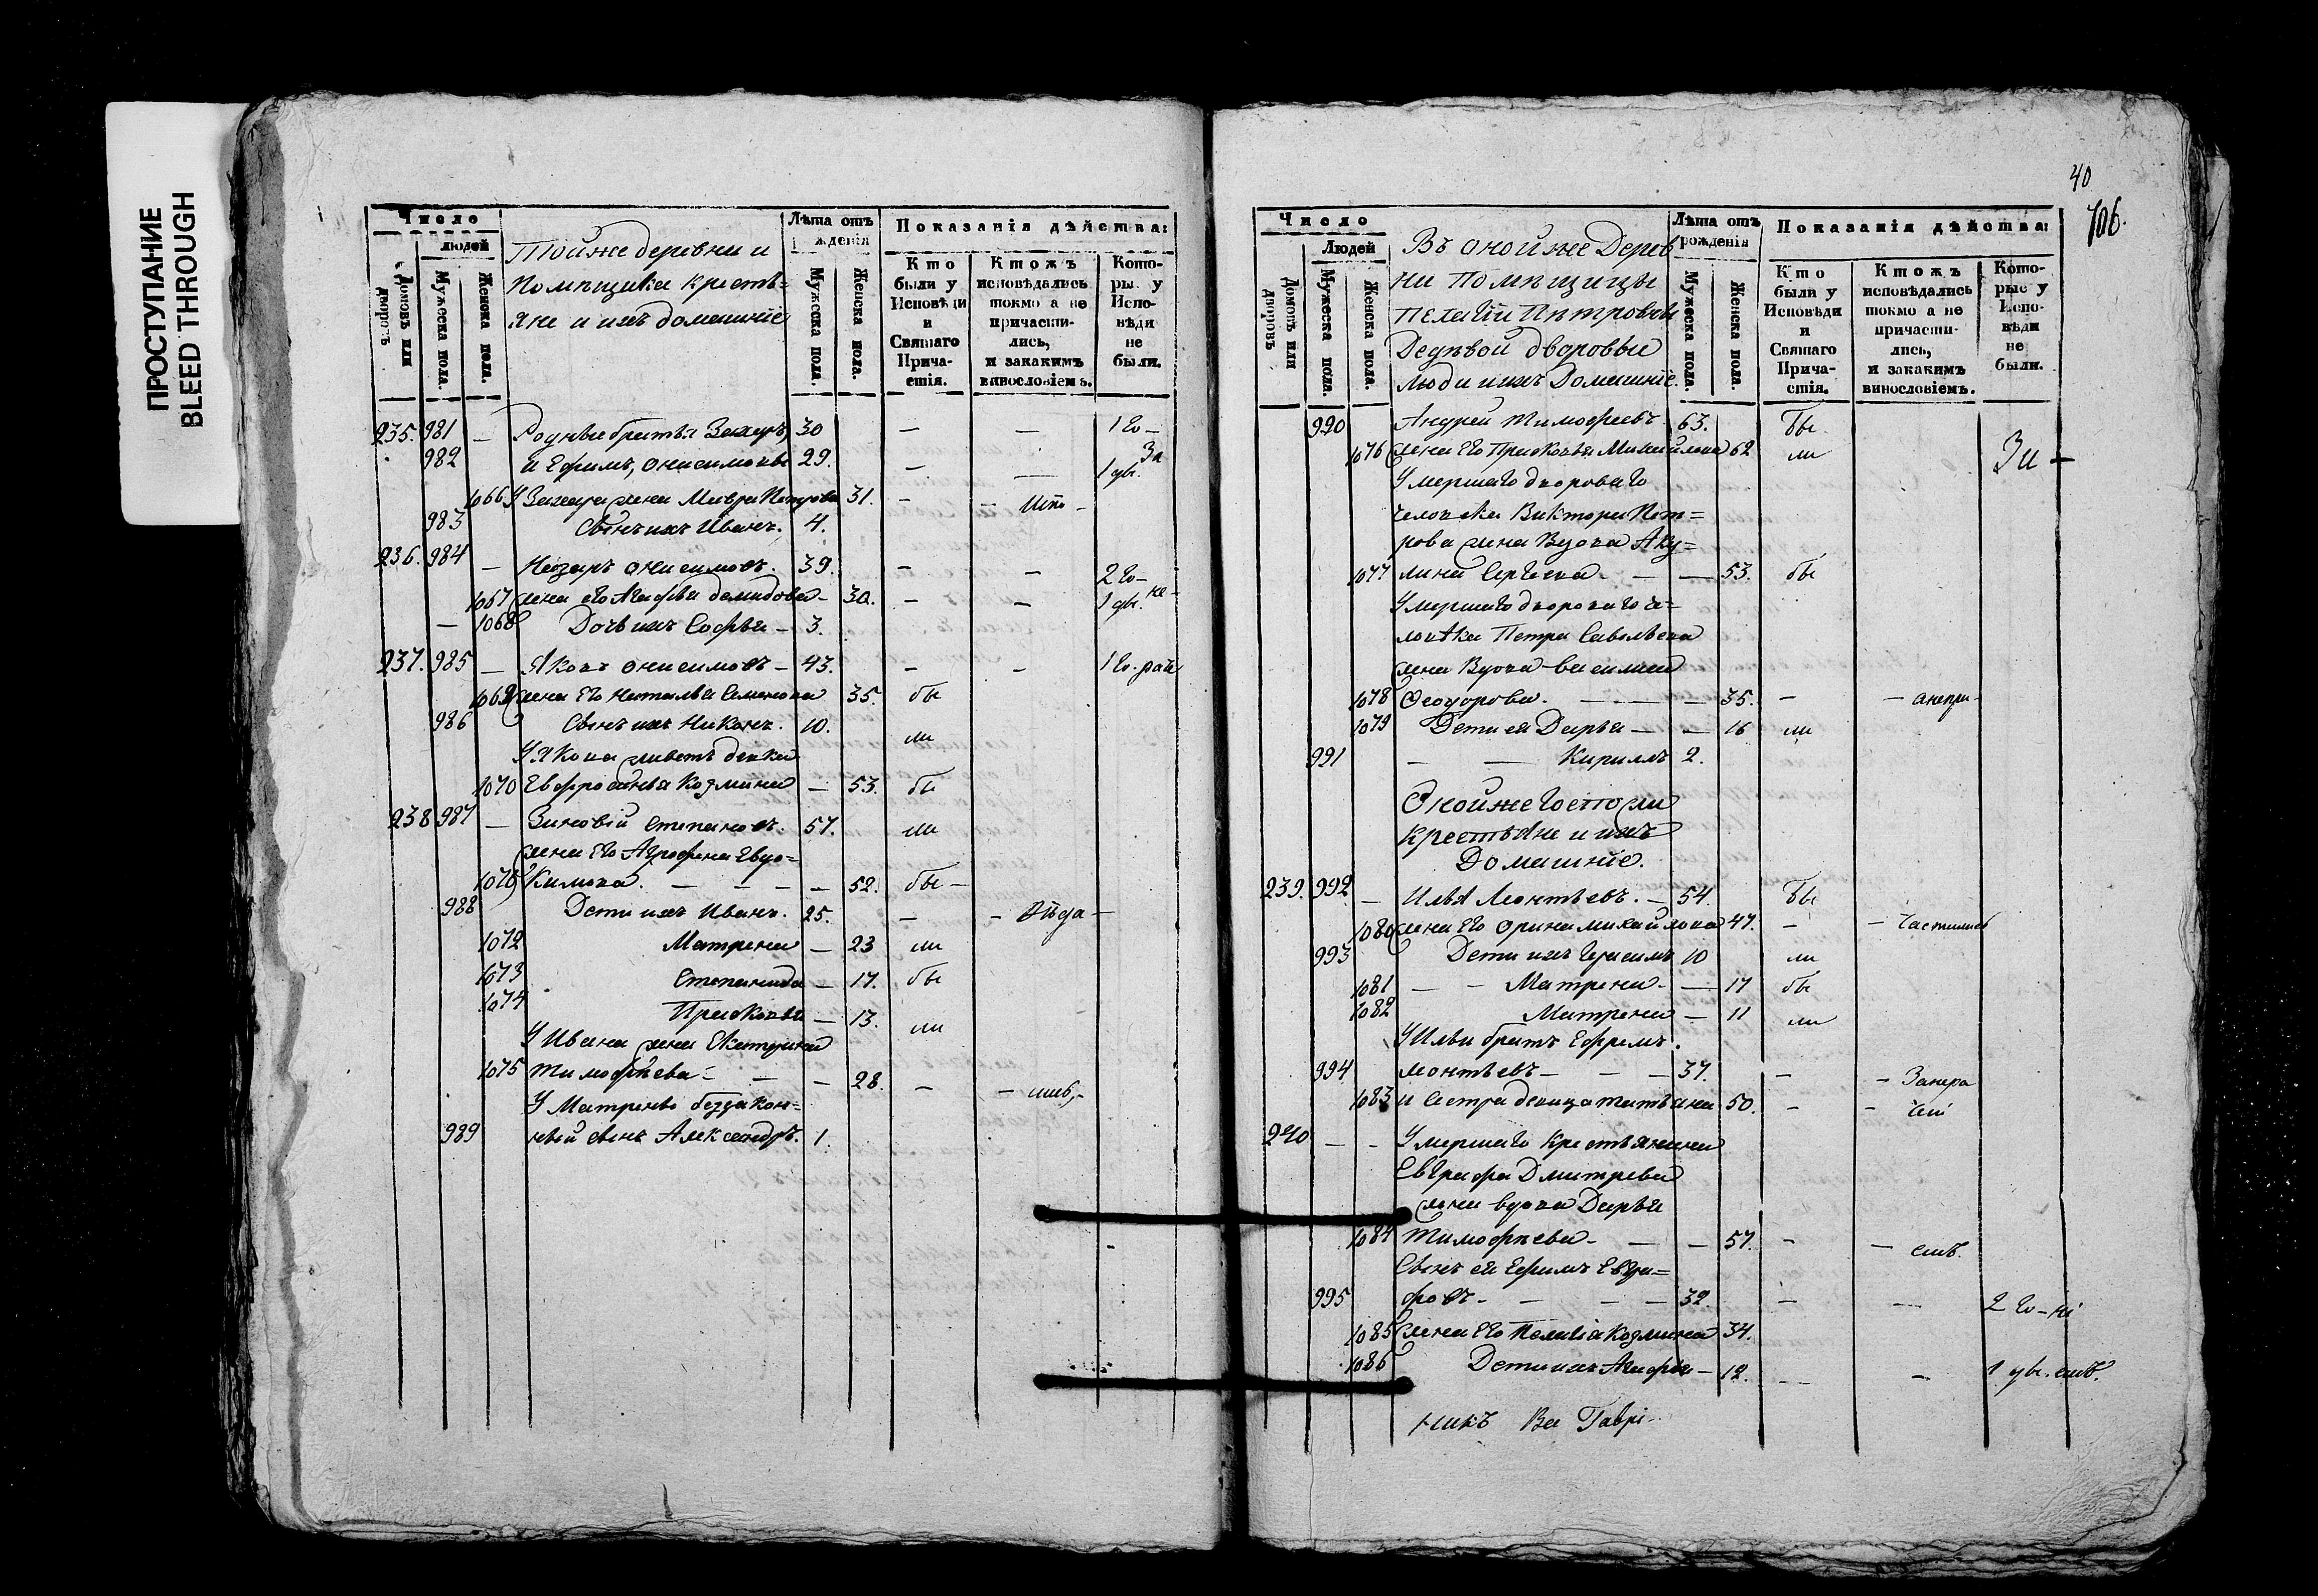 ПРОСТУПАНИЕ
BLEED THROUGH
Число
людей
Домовъ или дворовъ
Мужеска пола.
Женска пола.
Тойже деревни и
помѣщика крестья=
яне и ихъ домашнiе
Лѣта отъ рожденiя
Мужеска пола.
Женска пола.
Показанiя дѣйства:
Кто были у Исповѣди и Святаго Причастiя.
Ктожъ исповѣдались токмо а не причастились, и закакимъ винословiемъ.
Которые у Исповѣди не были.
235. 981 — Родные братья Захаръ, 30 — — 1 го —
982 и Ефимъ, Онисимовы 29. — — 1 ды. За
1066 У Захара жена Мавра Петрова 31. — —
983 Сынъ ихъ Иванъ. 4.
236. 984 — Назаръ Онисимовъ. 39. — — 2 го —
1067 жена его Агафья Демидова — 30. — — 1 ды. не-
— 1068 Дочь ихъ Софья — 3.
237. 985 — Яковъ Онисимовъ — 43. — — 1 го. рад
1069 жена Его Наталья Семенова 35. бы
986 Сынъ ихъ Никонъ. 10. ли
У Якова живетъ девка
1070 Евфросинья Козмина — 53. бы
238 987 — Зиновiй Степановъ. 57. ли
жена Его Агрофена Евдо=
1071 кимова. — — — — 52. бы —
988 Дети ихъ Иванъ. 25. — —
1072 Матрена — 23 ли
1073 Степанида — 17. бы
1074 Прасковья — 13. ли
У Ивана жена Екатерина
1075 Тимофѣева — — — 28. — —
У Матрены беззакон=
989 ный сынъ Александръ. 1.
40
106.
Число
Людей
Домовъ или дворовъ
Мужеска пола.
Женска пола.
Въ оной же Дерев
ни Помѣщицы
Пелагiи Петровны
дворовые
люди и ихъ Домашнiе.
Лѣта отъ рожденiя
Мужеска пола.
Женска пола.
Показанiя дѣйства:
Кто были у Исповѣди и Святаго Причастiя.
Ктожъ исповѣдались токмо а не причастились, и закакимъ винословiемъ.
Которые у Исповѣди не были.
990 Андрей Тимофеевъ. 63. бы
1076 жена Его Прасковья Михайлова 62 ли За —
Умершаго двороваго
человека Виктора Пет=
рова жена Вдова Аку=
1077 лина Сергѣева — — — 53. бы
Умершаго двороваго че=
ловѣка Петра Савельева
жена Вдова Василиса
1078 Феодорова. — — — 35. — — анепри-
1079 Дети ея Дарья — — 16 ли
991 — — Кирилъ 2.
Оной же Госпожи
крестьяне и ихъ
Домашнiе.
239. 992 — Илья Леонтьевъ. — 54. бы
1080 жена Его Орина Михайлова 47. — — частились
993 Дети ихъ Герасимъ 10 ли
1081 — — Матрена — — 17 бы
1082 Матрена — 11 ли
У Ильи братъ Ефремъ.
994 Леонтьевъ — — — 37. — —
1083 и сестра девица Татьяна 50. — —
240 — — Умершаго крестьянина
Евграфа Дмитрева
жена вдова Дарья
1084 Тимофѣева — — — 57. — —
Сынъ ея Ефимъ Евгра=
995 фовъ — — — — 32. — — 2 го — нi
1085 жена Его Пелагiя Козмина 34.
1086 Дети ихъ Агафья — 12. — — 1 ды.
никъ Ва Гаврi